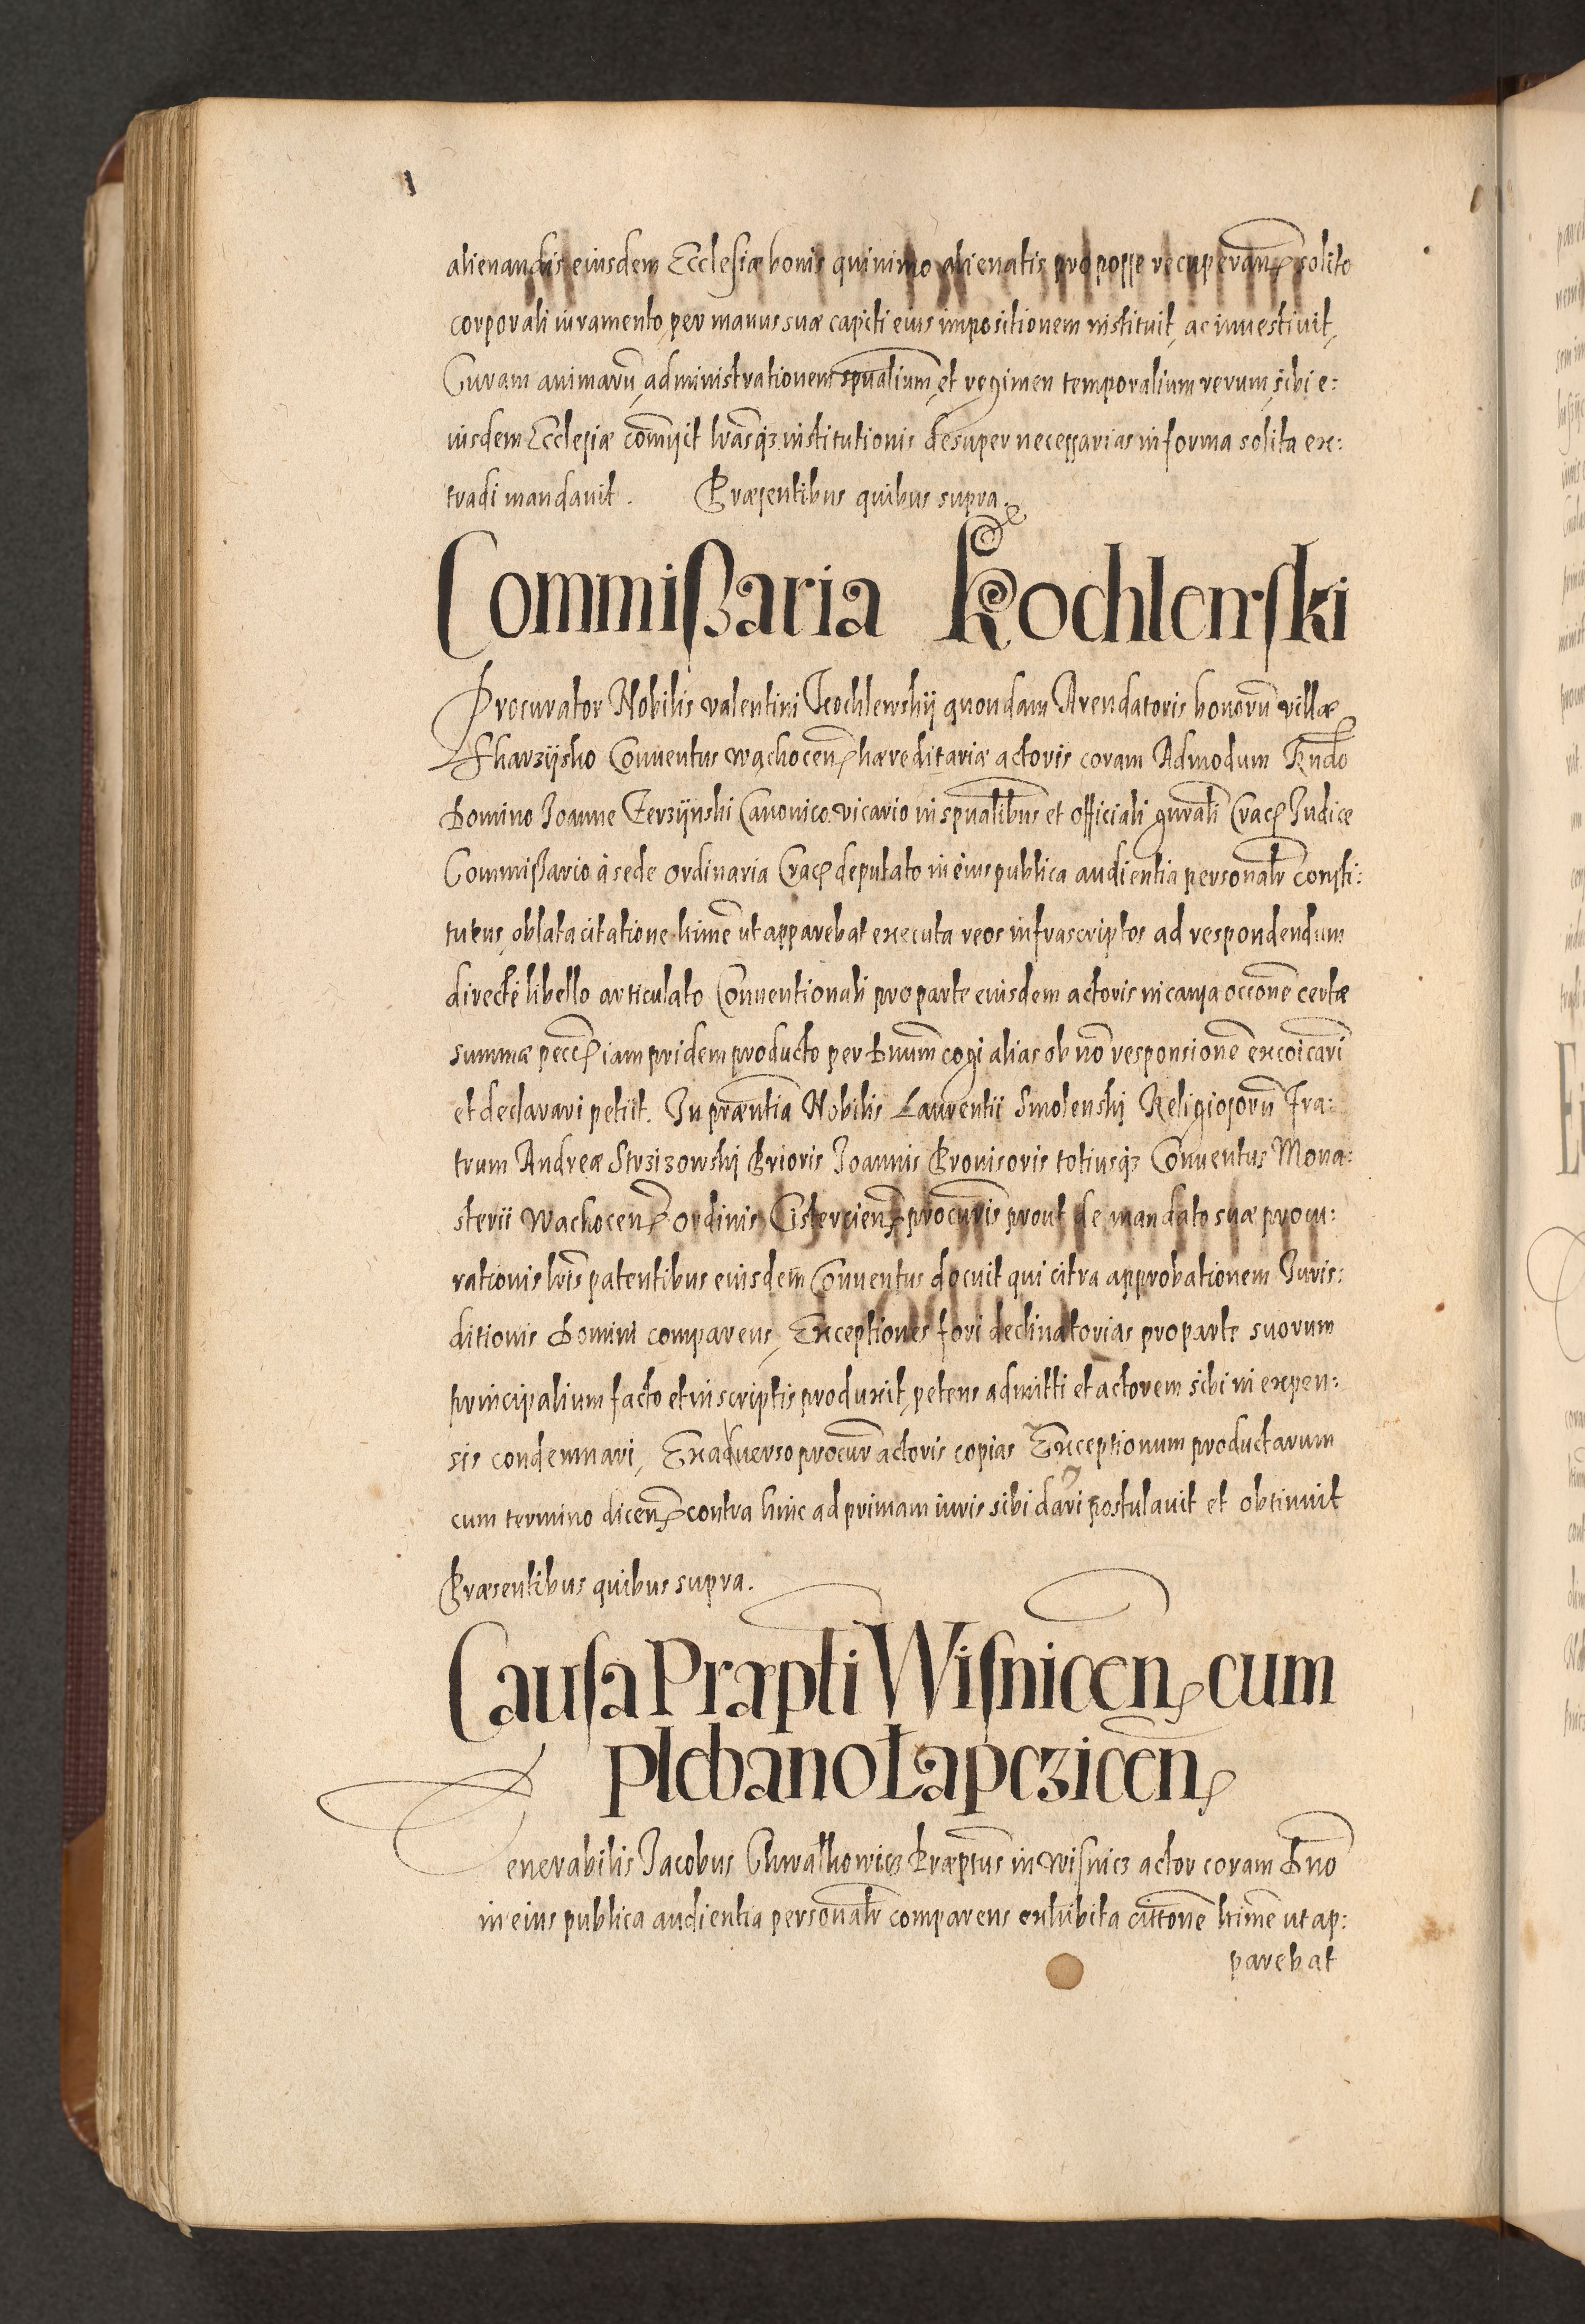 alienandis eiusdem Ecclesiæ bonis quinimo alienatis pro posse recuperandꝭ solito
corporali iuramento, per manus suæ capiti eius impositionem instituit, ac inuestiuit,
Curam animarũ, administrationem spũalium, et regimen temporalium rerum, sibi e:
iusdem Ecclesiæ com̃isit lr̃asqȝ institutionis desuper necessarias in forma solita ex:
tradi mandauit. Præsentibus quibus supra.
Commißaria Kochlewſki
Procurator Nobilis Valentini Kochlewskÿ quondam Arendatoris bonorũ villæ
Skarzÿsko Conuentus Wąchocen̄ hæreditariæ actoris coram Admodum Rñdo
Domino Joanne Kerzÿnski Canonico Vicario in spũalibus et officiali gñrali Crac̄ Judice
Commißario à sede ordinaria Crac̄ deputato in eius publica audientia personalr̃ consti:
tutus, oblata citatione ltimẽ ut apparebat executa reos infrascriptos ad respondendum
directè libello articulato Conuentionali pro parte eiusdem actoris in causa occõne certæ
summæ pecc̃ iam pridem producto per Dnum̃ cogi alias ob nõ responsionẽ excõicari
et declarari petiit. In præñtia Nobilis Laurentii Smolenskj Religiosorũ Fra:
trum Andreæ Strzizowskj Prioris Joannis Prouisoris totiusqȝ Conuentus Mona:
sterii Wachocen̄ ordinis Cistercien̄ procurĩs prout de mandato suæ procu:
rationis lr̃is patentibus eiusdem Conuentus docuit qui citra approbationem Juris:
ditionis Domini comparens, Exceptiones fori declinatorias pro parte suorum
principalium facto et in scriptis produxit, petens admitti et actorem sibi in expen:
sis condemnari, Ex aduerso procur̃ actoris copias Exceptionum productarum
cum termino dicen̄ contra hinc ad primam iuris sibi dari postulauit et obtinuit
Præsentibus quibus supra.
Cauſa Præpti Wiſnicen̄ cum
plebano Łapczicen̄
Venerabilis Jacobus Chwalkowicz Præptus in Wiſnicz actor coram Dño
in eius publica audientia personalr̃ comparens exhibita cittõne ltimẽ ut ap:
parebat